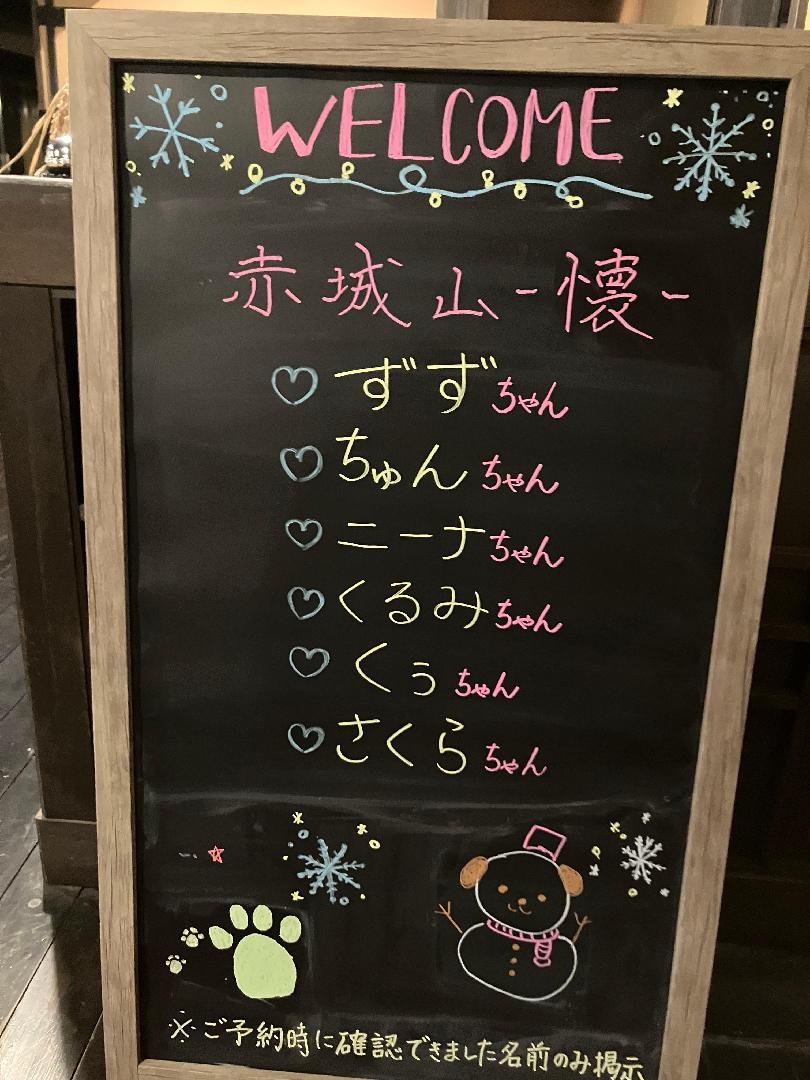 WELCOME
赤城山-懐-
ずずちゃん
ちゅんちゃん
ニーナちゃん
くるみちゃん
くぅちゃん
さくらちゃん
※ご予約時に確認できました名前のみ掲示